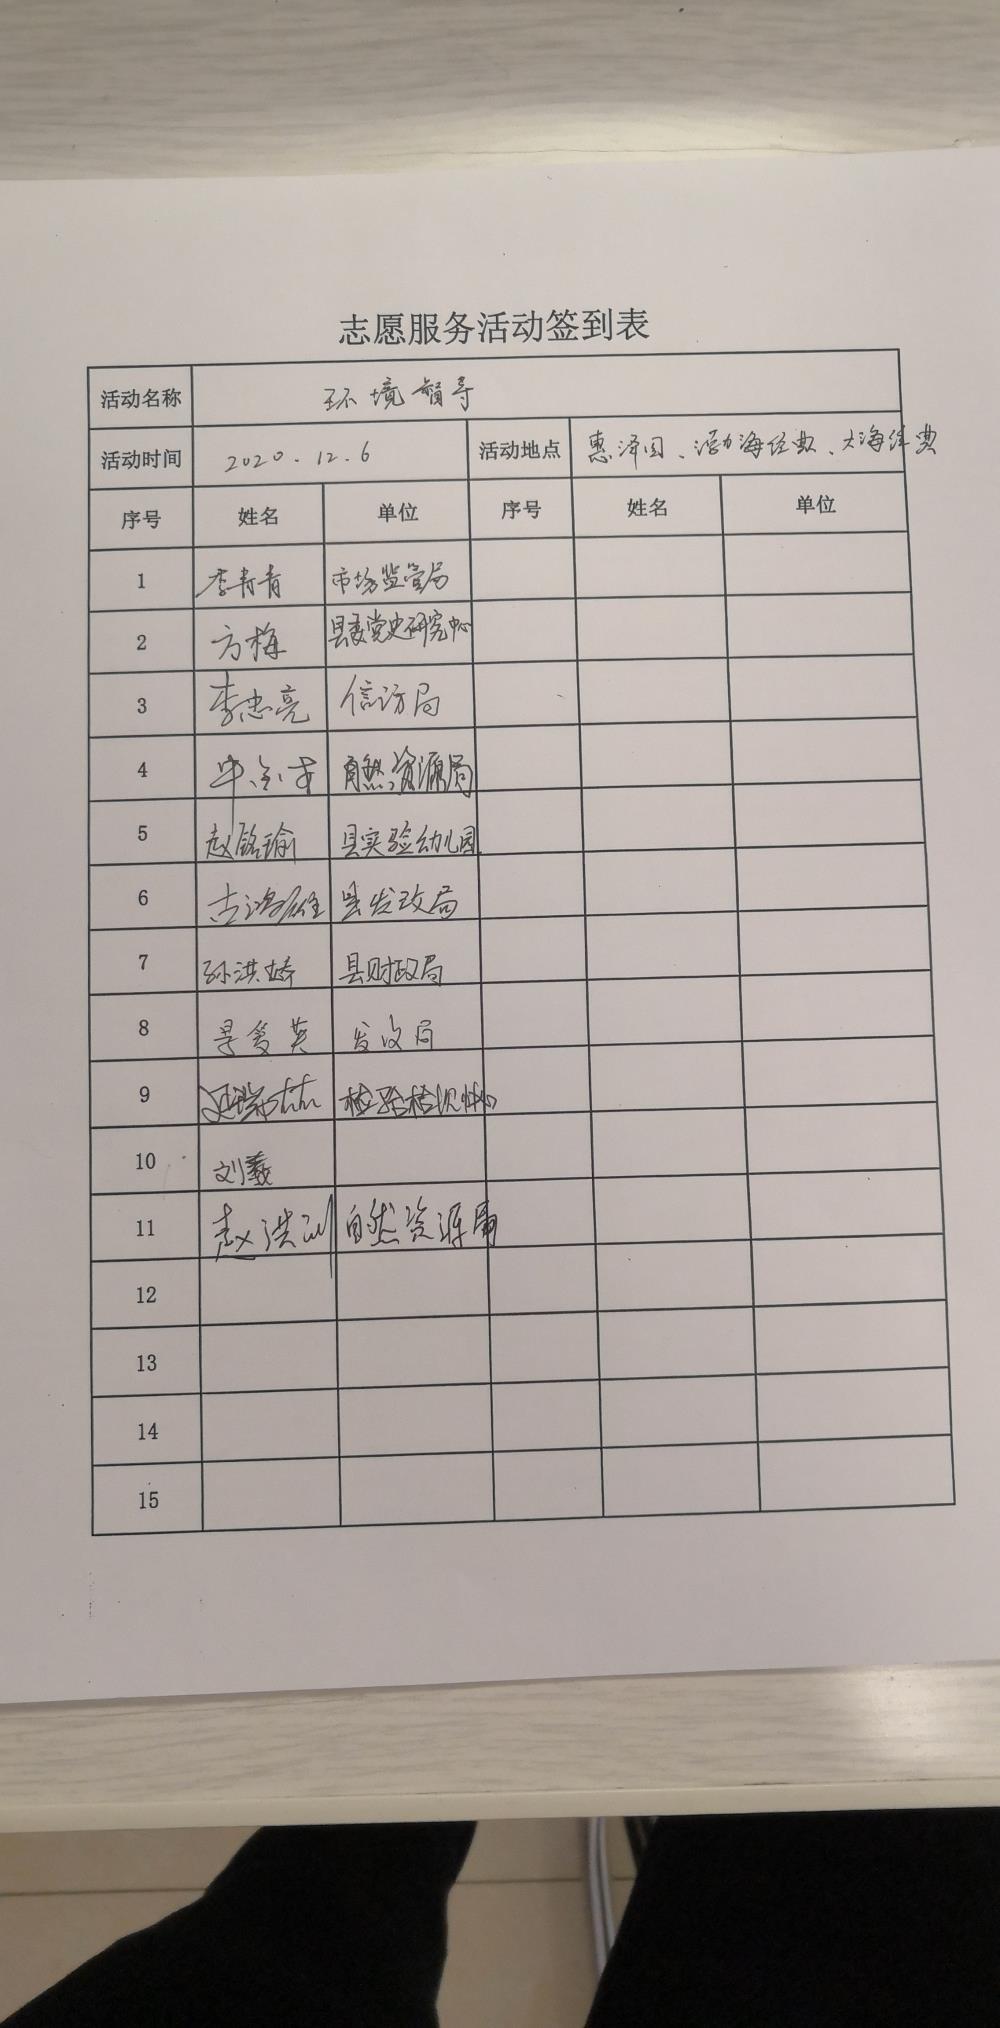 志愿服务活动签到表
活动名称 环境督导
活动时间 2020.12.6 活动地点 惠泽园、渤海经典、大海经典
序号 姓名 单位 序号 姓名 单位
1 李青青 市场监管局
2 方梅 县委党史研究中心
3 李忠亮 信访局
4 自然资源局
5 赵铭瑜 县实验幼儿园
6 古鸿雁 县发改局
7 孙洪娇 县财政局
8 爱英 发改局
9 检验检测中心
10 刘羲
11 赵洪 自然资源局
12
13
14
15